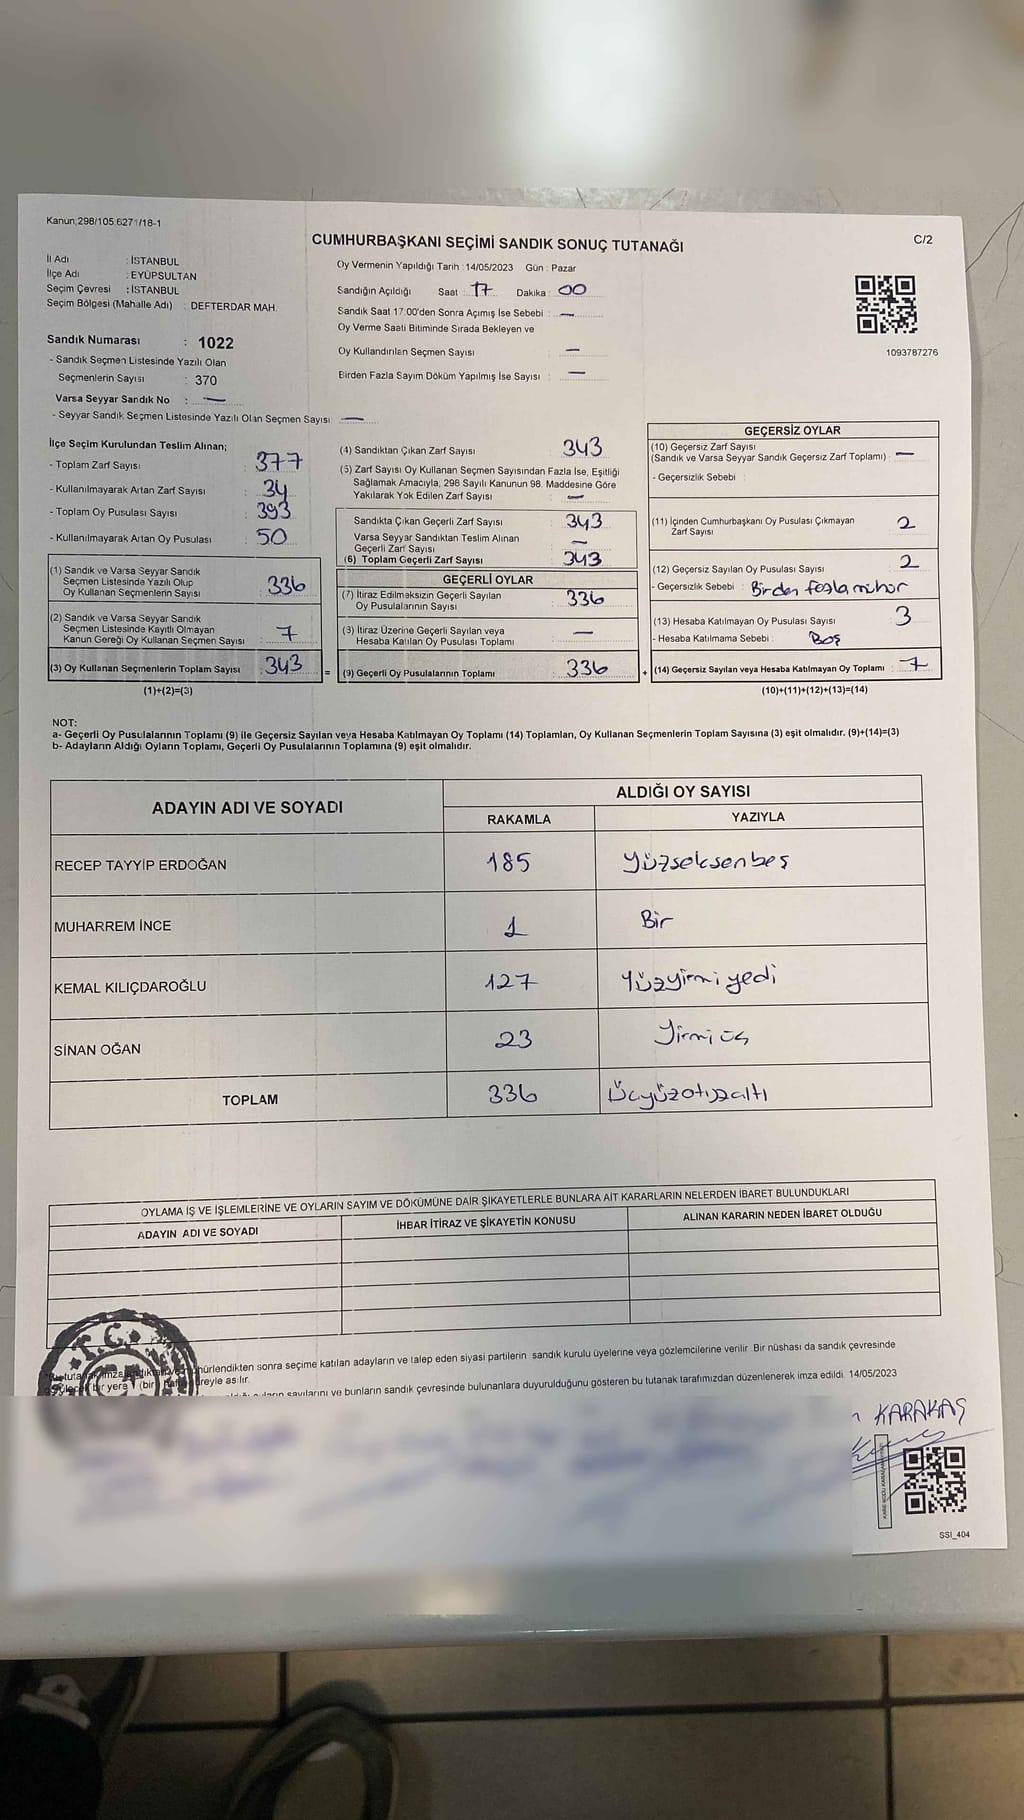 Kanun,298/105.6271/18-1
CUMHURBAŞKANI SEÇİMİ SANDIK SONUÇ TUTANAĞI
C/2
İl Adı : İSTANBUL
İlçe Adı : EYÜPSULTAN
Seçim Çevresi : İSTANBUL
Seçim Bölgesi (Mahalle Adı) : DEFTERDAR MAH.
Sandık Numarası : 1022
- Sandık Seçmen Listesinde Yazılı Olan
Seçmenlerin Sayısı : 370
Varsa Seyyar Sandık No : —
- Seyyar Sandık Seçmen Listesinde Yazılı Olan Seçmen Sayısı : —
Oy Vermenin Yapıldığı Tarih : 14/05/2023 Gün : Pazar
Sandığın Açıldığı Saat : 17 Dakika : 00
Sandık Saat 17:00'den Sonra Açımış İse Sebebi : —
Oy Verme Saati Bitiminde Sırada Bekleyen ve
Oy Kullandırılan Seçmen Sayısı : —
Birden Fazla Sayım Döküm Yapılmış İse Sayısı : —
1093787276
İlçe Seçim Kurulundan Teslim Alınan;
- Toplam Zarf Sayısı : 377
- Kullanılmayarak Artan Zarf Sayısı : 34
- Toplam Oy Pusulası Sayısı : 393
- Kullanılmayarak Artan Oy Pusulası : 50
(1) Sandık ve Varsa Seyyar Sandık
Seçmen Listesinde Yazılı Olup
Oy Kullanan Seçmenlerin Sayısı : 336
(2) Sandık ve Varsa Seyyar Sandık
Seçmen Listesinde Kayıtlı Olmayan
Kanun Gereği Oy Kullanan Seçmen Sayısı : 7
(3) Oy Kullanan Seçmenlerin Toplam Sayısı : 343
(1)+(2)=(3)
(4) Sandıktan Çıkan Zarf Sayısı : 343
(5) Zarf Sayısı Oy Kullanan Seçmen Sayısından Fazla İse, Eşitliği
Sağlamak Amacıyla, 298 Sayılı Kanunun 98. Maddesine Göre
Yakılarak Yok Edilen Zarf Sayısı : —
Sandıkta Çıkan Geçerli Zarf Sayısı : 343
Varsa Seyyar Sandıktan Teslim Alınan
Geçerli Zarf Sayısı : —
(6) Toplam Geçerli Zarf Sayısı : 343
GEÇERLİ OYLAR
(7) İtiraz Edilmeksizin Geçerli Sayılan
Oy Pusulalarının Sayısı : 336
(8) İtiraz Üzerine Geçerli Sayılan veya
Hesaba Katılan Oy Pusulası Toplamı : —
= (9) Geçerli Oy Pusulalarının Toplamı : 336
GEÇERSİZ OYLAR
(10) Geçersiz Zarf Sayısı
(Sandık ve Varsa Seyyar Sandık Geçersiz Zarf Toplamı) : —
- Geçersizlik Sebebi :
(11) İçinden Cumhurbaşkanı Oy Pusulası Çıkmayan
Zarf Sayısı : 2
(12) Geçersiz Sayılan Oy Pusulası Sayısı : 2
- Geçersizlik Sebebi : Birden fazla mühür
(13) Hesaba Katılmayan Oy Pusulası Sayısı : 3
- Hesaba Katılmama Sebebi : Boş
+ (14) Geçersiz Sayılan veya Hesaba Katılmayan Oy Toplamı : 7
(10)+(11)+(12)+(13)=(14)
NOT:
a- Geçerli Oy Pusulalarının Toplamı (9) ile Geçersiz Sayılan veya Hesaba Katılmayan Oy Toplamı (14) Toplamları, Oy Kullanan Seçmenlerin Toplam Sayısına (3) eşit olmalıdır. (9)+(14)=(3)
b- Adayların Aldığı Oyların Toplamı, Geçerli Oy Pusulalarının Toplamına (9) eşit olmalıdır.
ADAYIN ADI VE SOYADI
ALDIĞI OY SAYISI
RAKAMLA YAZIYLA
RECEP TAYYİP ERDOĞAN 185 Yüzseksenbeş
MUHARREM İNCE 1 Bir
KEMAL KILIÇDAROĞLU 127 Yüzyirmiyedi
SİNAN OĞAN 23 Yirmi üç
TOPLAM 336 Üçyüzotuzaltı
OYLAMA İŞ VE İŞLEMLERİNE VE OYLARIN SAYIM VE DÖKÜMÜNE DAİR ŞİKAYETLERLE BUNLARA AİT KARARLARIN NELERDEN İBARET BULUNDUKLARI
ADAYIN ADI VE SOYADI İHBAR İTİRAZ VE ŞİKAYETİN KONUSU ALINAN KARARIN NEDEN İBARET OLDUĞU
T.C.
hürlendikten sonra seçime katılan adayların ve talep eden siyasi partilerin sandık kurulu üyelerine veya gözlemcilerine verilir. Bir nüshası da sandık çevresinde
bir yere (bir) hafta süreyle asılır.
sayılarını ve bunların sandık çevresinde bulunanlara duyurulduğunu gösteren bu tutanak tarafımızdan düzenlenerek imza edildi. 14/05/2023
KARAKAŞ
SSI_404